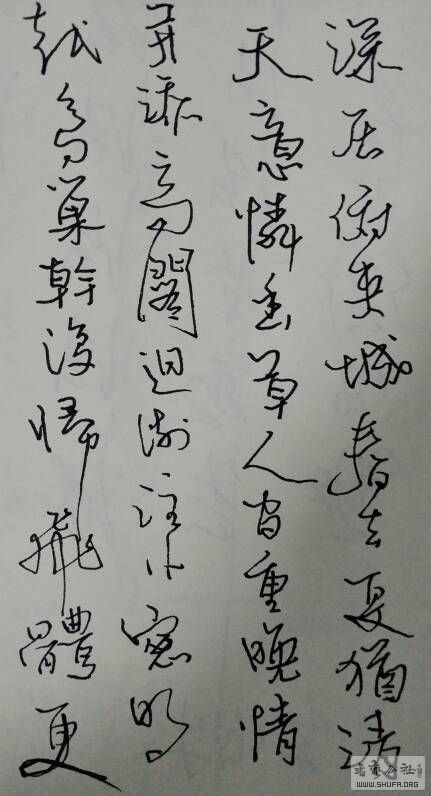 深居俯夾城春去夏猶清
天意憐幽草人間重晚情
并添高閣迥微注小窗明
越鳥巢幹後歸飛體更
WWW.SHUFA.ORG